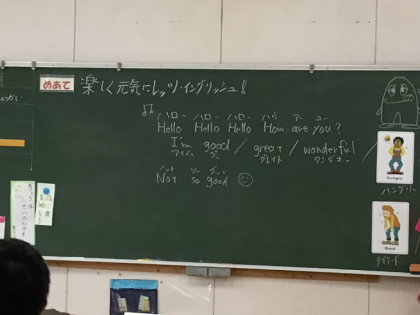 めあて 楽しく元気にレッツ・イングリッシュ!
ハロー ハロー ハロー ハウ アー ユー
Hello Hello Hello How are you?
I'm good / great / wonderful /
アイム グー グレイト ワンダホー
ノット ソー グッド
Not so good
hungry
ハングリー
tired
タイアード